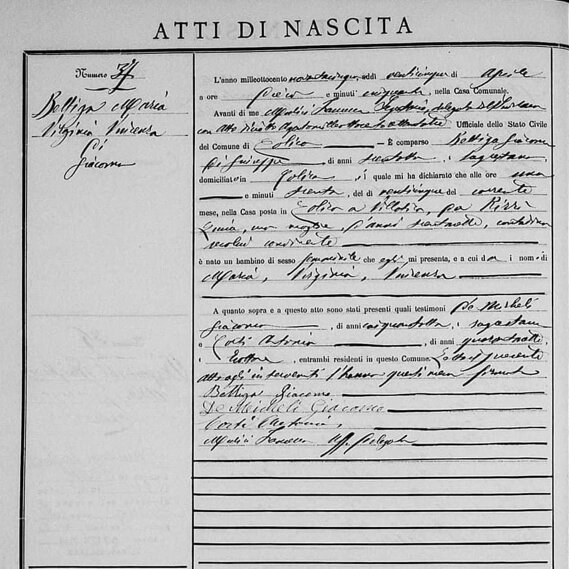 ATTI DI NASCITA
Numero 37
Bettiga Maria
Virginia Vincenza
di
Giacomo
L'anno milleottocento novantacinque, addì venticinque di Aprile
a ore dieci e minuti cinquanta, nella Casa Comunale.
Avanti di me Segretario delegato
con atto Ufficiale dello Stato Civile
del Comune di Colico — È comparso Bettiga Giacomo
di Giuseppe, di anni trentotto, segretario,
domiciliato in Colico, il quale mi ha dichiarato che alle ore una
e minuti trenta, del dì venticinque del corrente
mese, nella Casa posta in Colico a Villatico, da Rizzi
sua moglie, d'anni contadina
seco lui convivente
è nato un bambino di sesso femminile che egli mi presenta, e a cui dà i nomi di
Maria, Virginia, Vincenza
A quanto sopra e a questo atto sono stati presenti quali testimoni De Micheli
Giacomo, di anni cinquantotto,
e Corti Antonio, di anni quarantasette,
entrambi residenti in questo Comune. Letto il presente
atto agli intervenuti l'hanno questi meco firmato
Bettiga Giacomo
De Micheli Giacomo
Corti Antonio